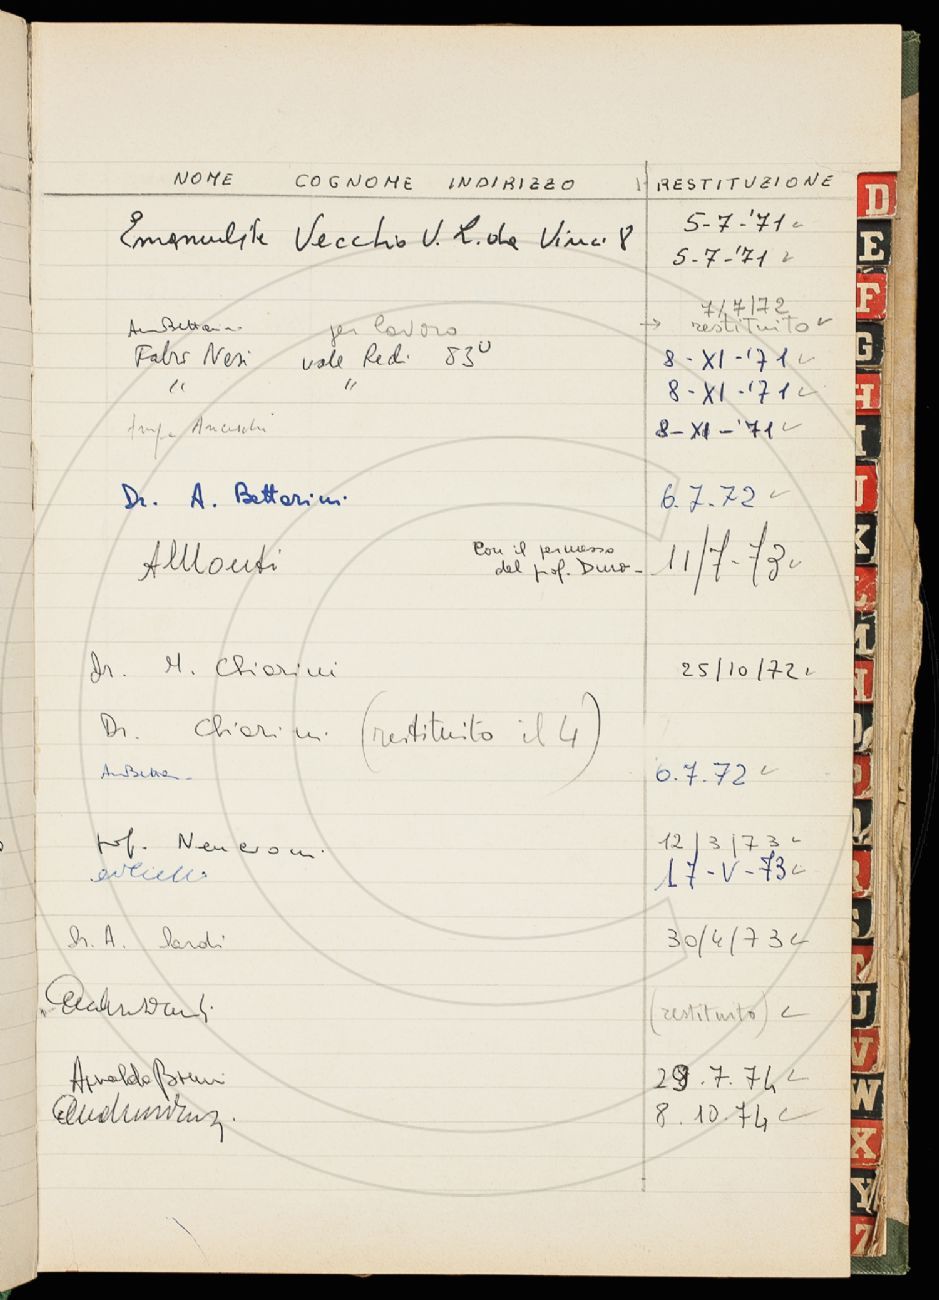 NOME COGNOME INDIRIZZO RESTITUZIONE
Vecchio V. L. da Vinci 8 5-7-'71
5-7-'71
7/7/72
per lavoro → restituito
Fabio Nesi viale Redi 83 8-XI-'71
" " 8-XI-'71
8-XI-'71
Dr. A. Bettarini 6.7.72
AMonti Con il permesso
del prof. Duro - 11/7-73
Dr. M. Chiarini 25/10/72
Dr. Chiarini (restituito il 4)
6.7.72
prof. Nencioni 12/3/73
17-V-73
Dr. A. 30/4/73
(restituito)
Arnaldo Bruni 29.7.74
8.10.74
D
E
F
G
H
I
J
K
L
M
N
O
P
Q
R
T
U
V
W
X
Y
Z